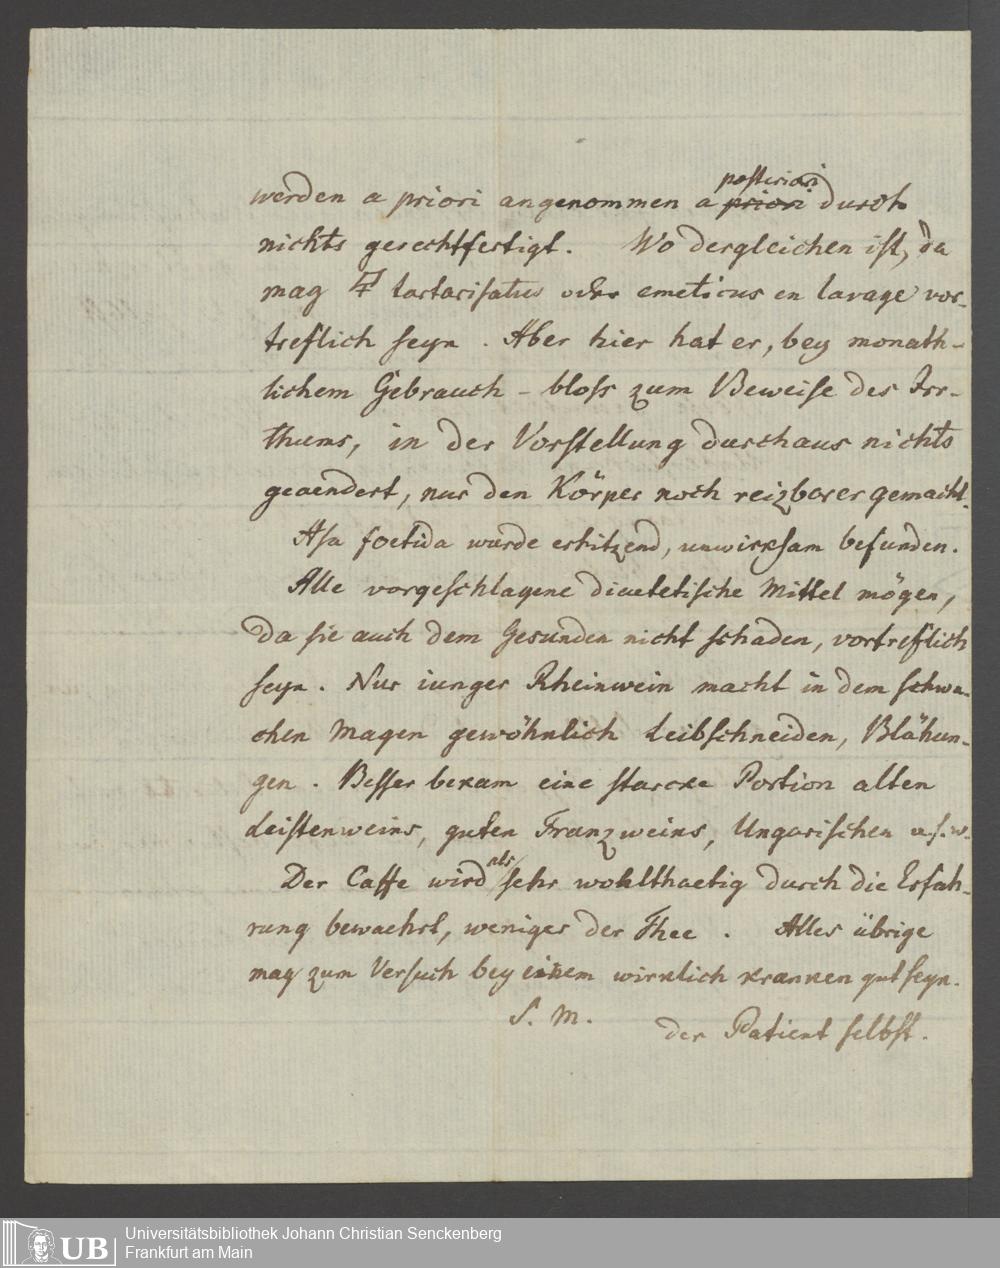 posteriori
werden a priori angenommen a priori durch
nichts gerechtfertigt. Wo dergleichen ist, da
mag tartarisatus oder emeticus en lavage vor-
treflich seyn. Aber hier hat er, bey monath-
lichem Gebrauch - bloss zum Beweise des Irr-
thums, in der Vorstellung durchaus nichts
geaendert, nur den Körper noch reizbarer gemacht.
Asa foetida wurde erhitzend, unwirksam befunden.
Alle vorgeschlagene diaetetische Mittel mögen,
da sie auch dem Gesunden nicht schaden, vortreflich
seyn. Nur iunger Rheinwein macht in dem schwa-
chen Magen gewöhnlich Leibschneiden, Blähun-
gen. Besser bekam eine starcke Portion alten
Leistenweins, guten Franzweins, Ungarischen u.s.w.
als
Der Caffe wird sehr wohlthaetig durch die Erfah-
rung bewaehrt, weniger der Thee. Alles übrige
mag zum Versuch bey einem wirklich kranken gut seyn.
S. M.
der Patient selbst.
UB
Universitätsbibliothek Johann Christian Senckenberg
Frankfurt am Main